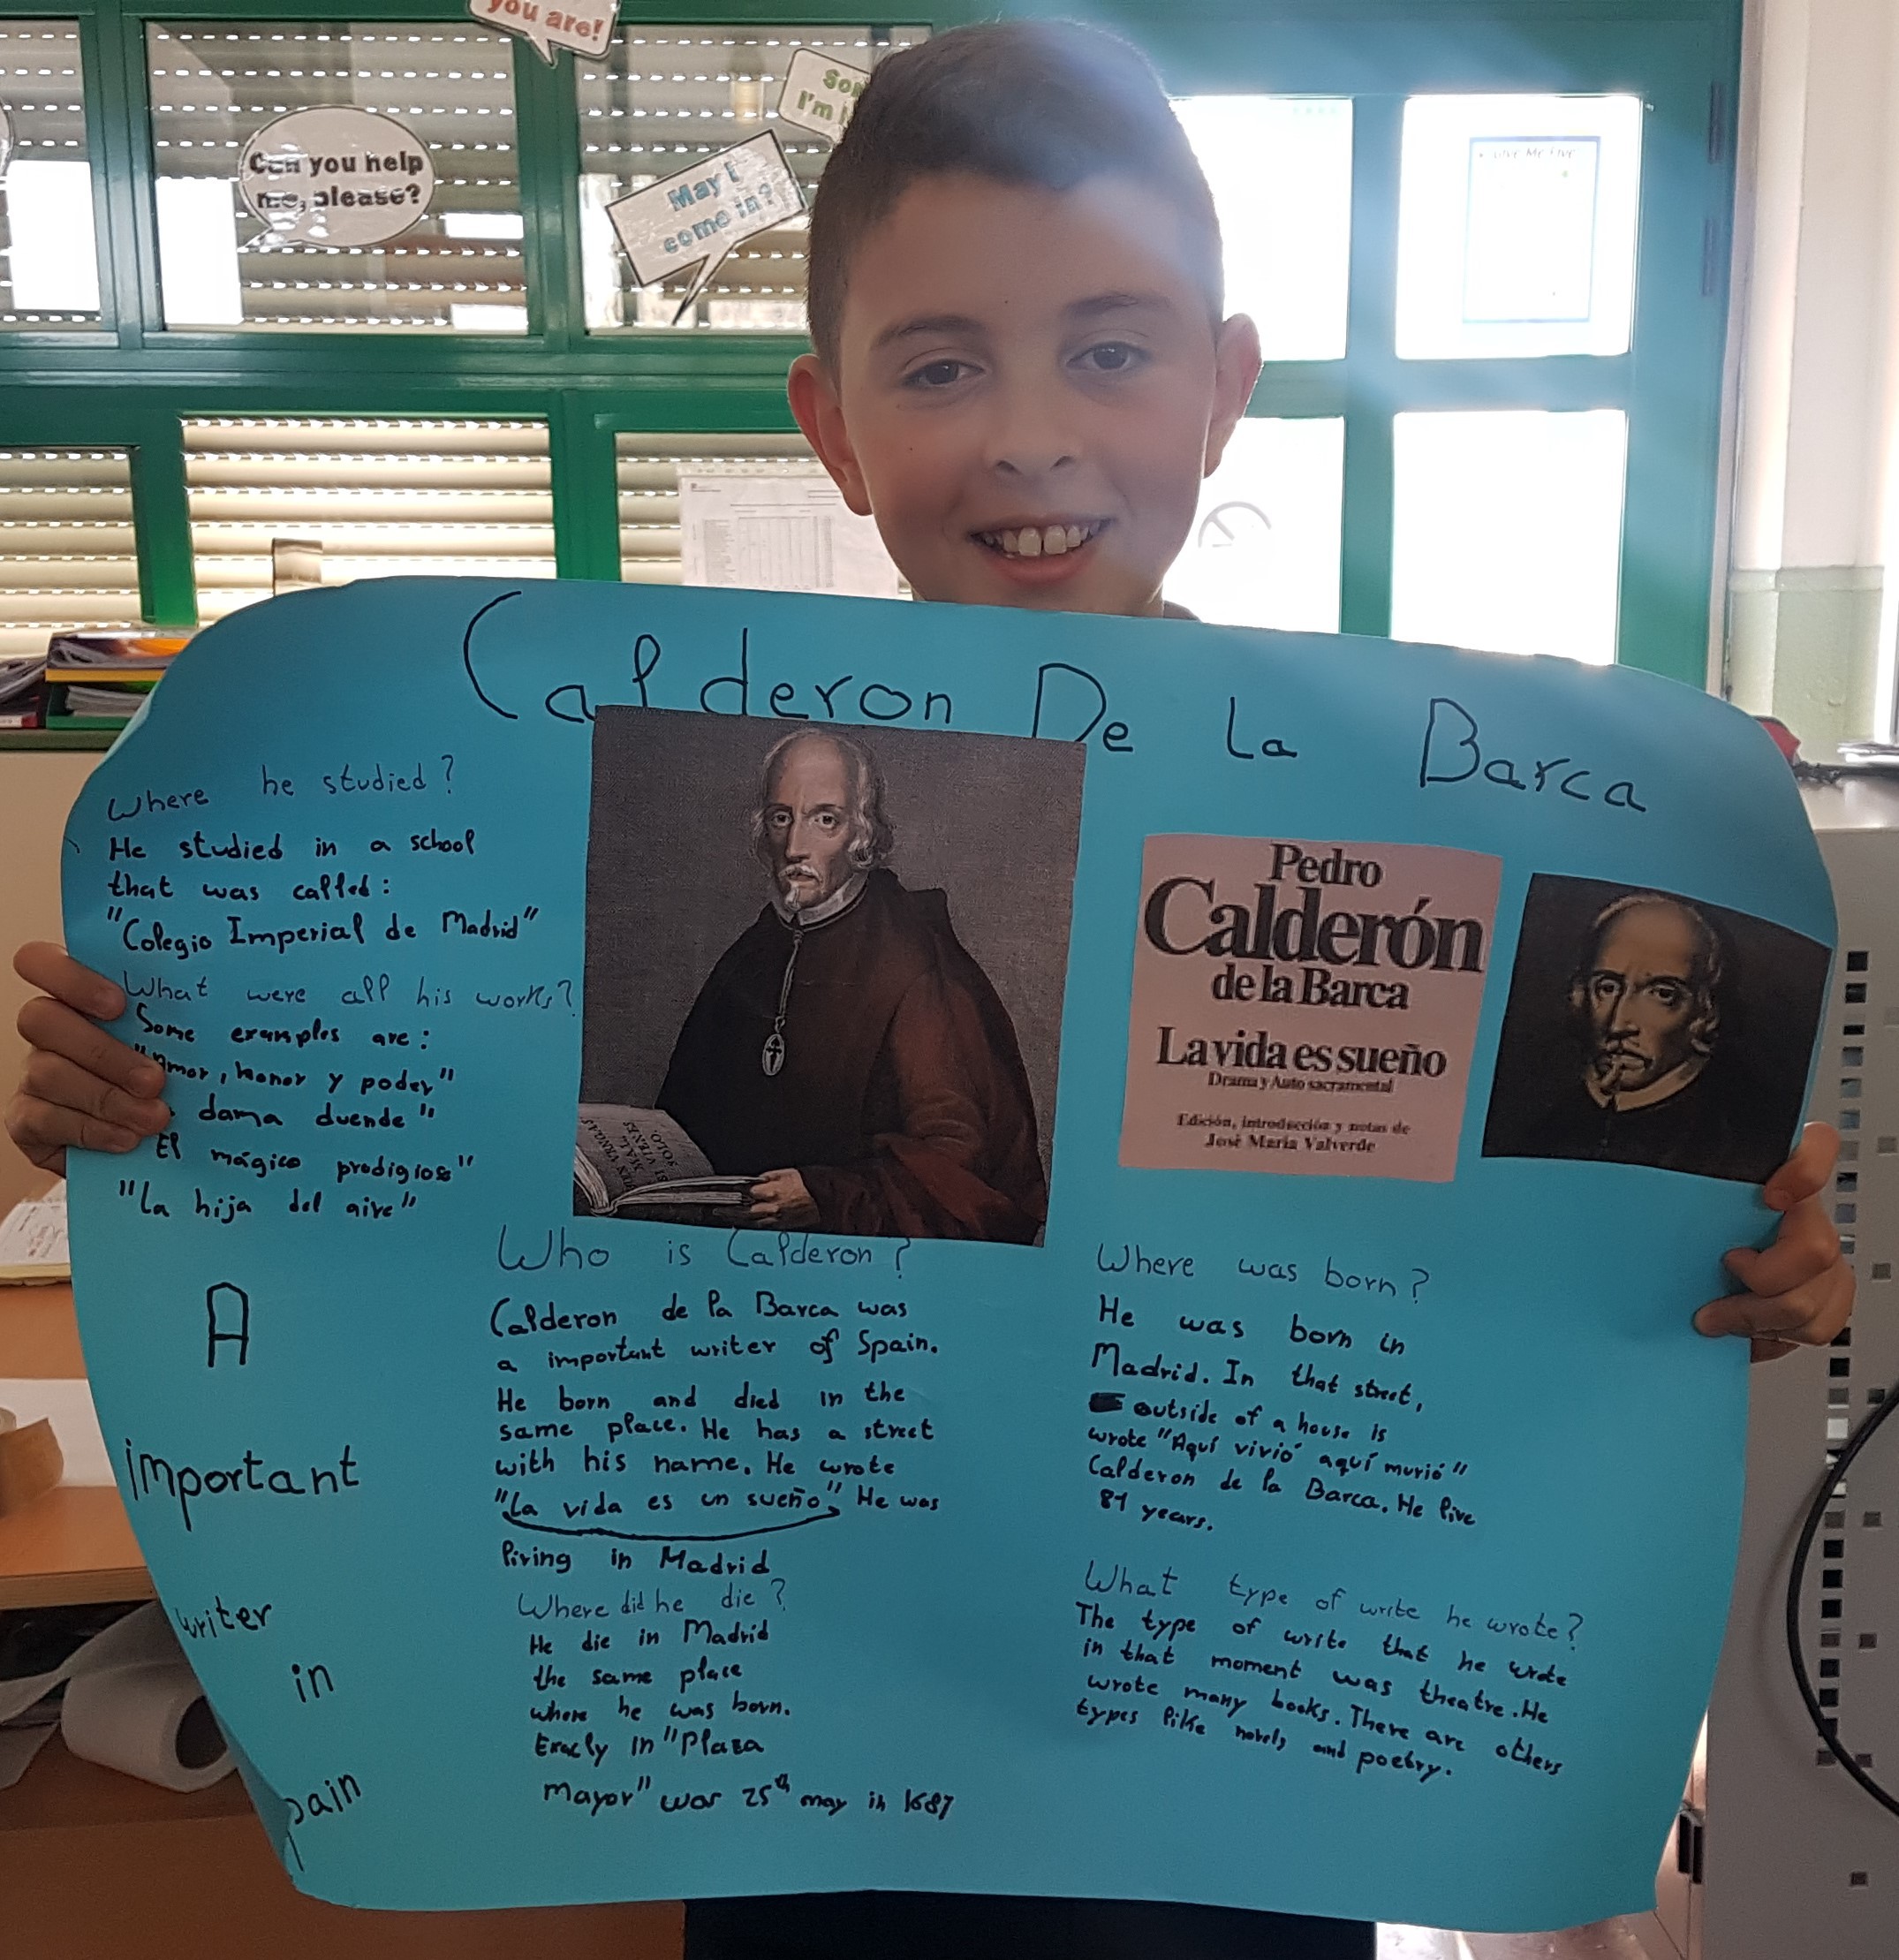 you are!
Can you help
me, please?
May I
come in?
I'm
Give Me Five
Calderon De La Barca
Where he studied?
He studied in a school
that was called:
"Colegio Imperial de Madrid"
What were all his works?
Some examples are:
"Amor, honor y poder"
dama duende"
El mágico prodigioso"
"La hija del aire"
A
important
writer
in
pain
MAL
VIENES
SOLO.
Pedro
Calderón
de la Barca
La vida es sueño
Drama y Auto sacramental
Edición, introducción y notas de
José María Valverde
Who is Calderon?
Calderon de la Barca was
a important writer of Spain.
He born and died in the
same place. He has a street
with his name. He wrote
"La vida es un sueño" He was
living in Madrid
Where did he die?
He die in Madrid
the same place
where he was born.
Exacly in "Plaza
Mayor" was 25th may in 1681
Where was born?
He was born in
Madrid. In that street,
outside of a house is
wrote "Aquí vivió aquí murió"
Calderon de la Barca. He live
81 years.
What type of write he wrote?
The type of write that he wrote
in that moment was theatre. He
wrote many books. There are others
types like novels and poetry.